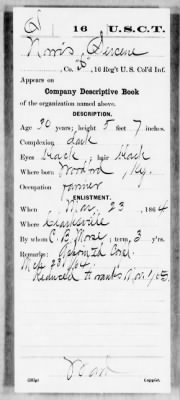 16 U.S.C.T.
Norris, Percene
, Co. B, 16 Reg't U. S. Col'd Inf.
Appears on
Company Descriptive Book
of the organization named above.
DESCRIPTION.
Age 30 years; height 5 feet 7 inches.
Complexion dark
Eyes black; hair black
Where born Woodford, Ky.
Occupation farmer
ENLISTMENT.
When Mar. 23, 1864
Where Clarksville
By whom C. B. Morse; term, 3 y'rs.
Remarks: Corp'l.
Mch 23/64.
Reduced to ranks Mar. 1/65.
Copyist.